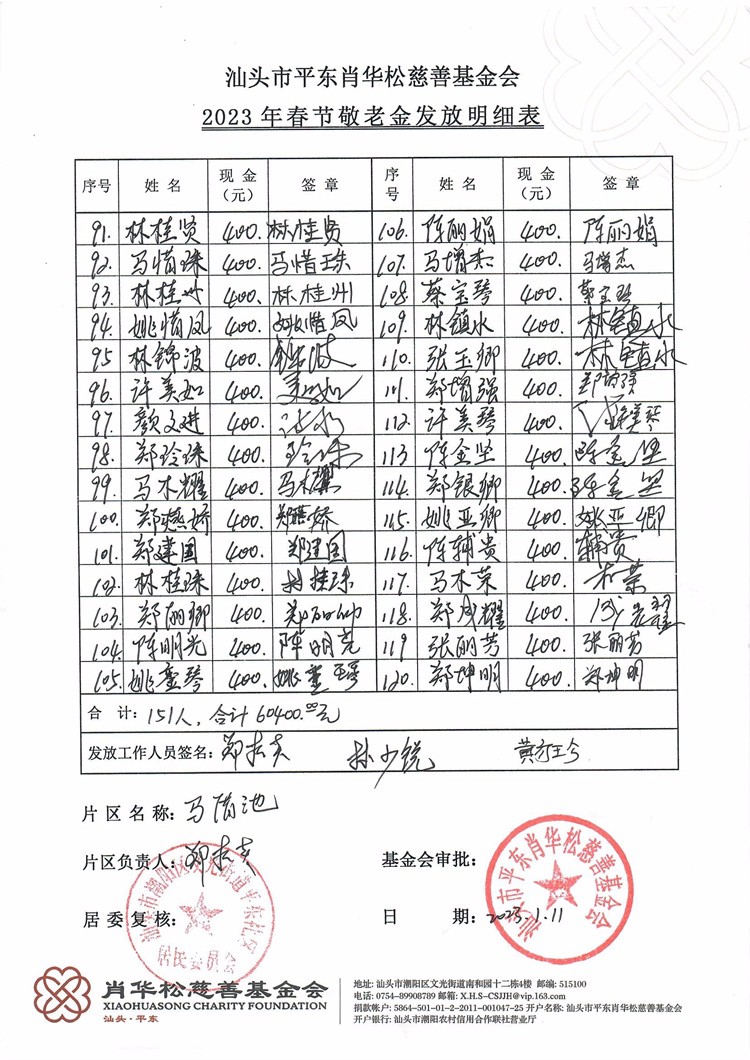 汕头市平东肖华松慈善基金会
2023年春节敬老金发放明细表
序号 姓名 现金(元) 签章 序号 姓名 现金(元) 签章
91. 林桂贤 400. 林桂贤 106. 陈丽娟 400. 陈丽娟
92. 马惜珠 400. 马惜珠 107. 马增杰 400. 马增杰
93. 林桂州 400. 林桂州 108. 蔡宝琴 400.
94. 姚惜凤 400. 姚惜凤 109. 林镇水 400. 林镇水
95 林锦波 400. 110. 张玉卿 400. 林镇水
96. 许美如 400. 美如 111. 郑增强 400.
97. 颜文进 400. 112. 许美琴 400. 许美琴
98. 郑玲珠 400. 玲珠 113 陈金坚 400. 陈金坚
99. 马木耀 400. 马木耀 114. 郑银卿 400.
100. 郑燕娇 400. 郑燕娇 115. 姚亚卿 400. 姚亚卿
101. 郑建国 400. 郑建国 116. 陈辅贵 400. 辅贵
102. 林桂珠 400. 林桂珠 117. 马木荣 400. 木荣
103. 郑丽卿 400. 118. 郑成耀 400.
104. 陈明光 400. 陈明亮 119 张丽芳 400. 张丽芳
105. 姚銮琴 400. 姚銮琴 120. 郑坤明 400. 郑坤明
合 计:151人,合计60400.00元
发放工作人员签名:
片区名称:马惜池
片区负责人: 基金会审批:
居委复核: 日 期:2023.1.11
汕头市潮阳区文光街道平东社区
居民委员会
汕头市平东肖华松慈善基金会
肖华松慈善基金会
XIAOHUASONG CHARITY FOUNDATION
汕头·平东
地址: 汕头市潮阳区文光街道南和园十二栋4楼 邮编: 515100
电话: 0754-89908789 邮箱: X.H.S-CSJJH@vip.163.com
捐款帐户: 5864-501-01-2-2011-001047-25 开户名称: 汕头市平东肖华松慈善基金会
开户银行: 汕头市潮阳农村信用合作联社营业厅